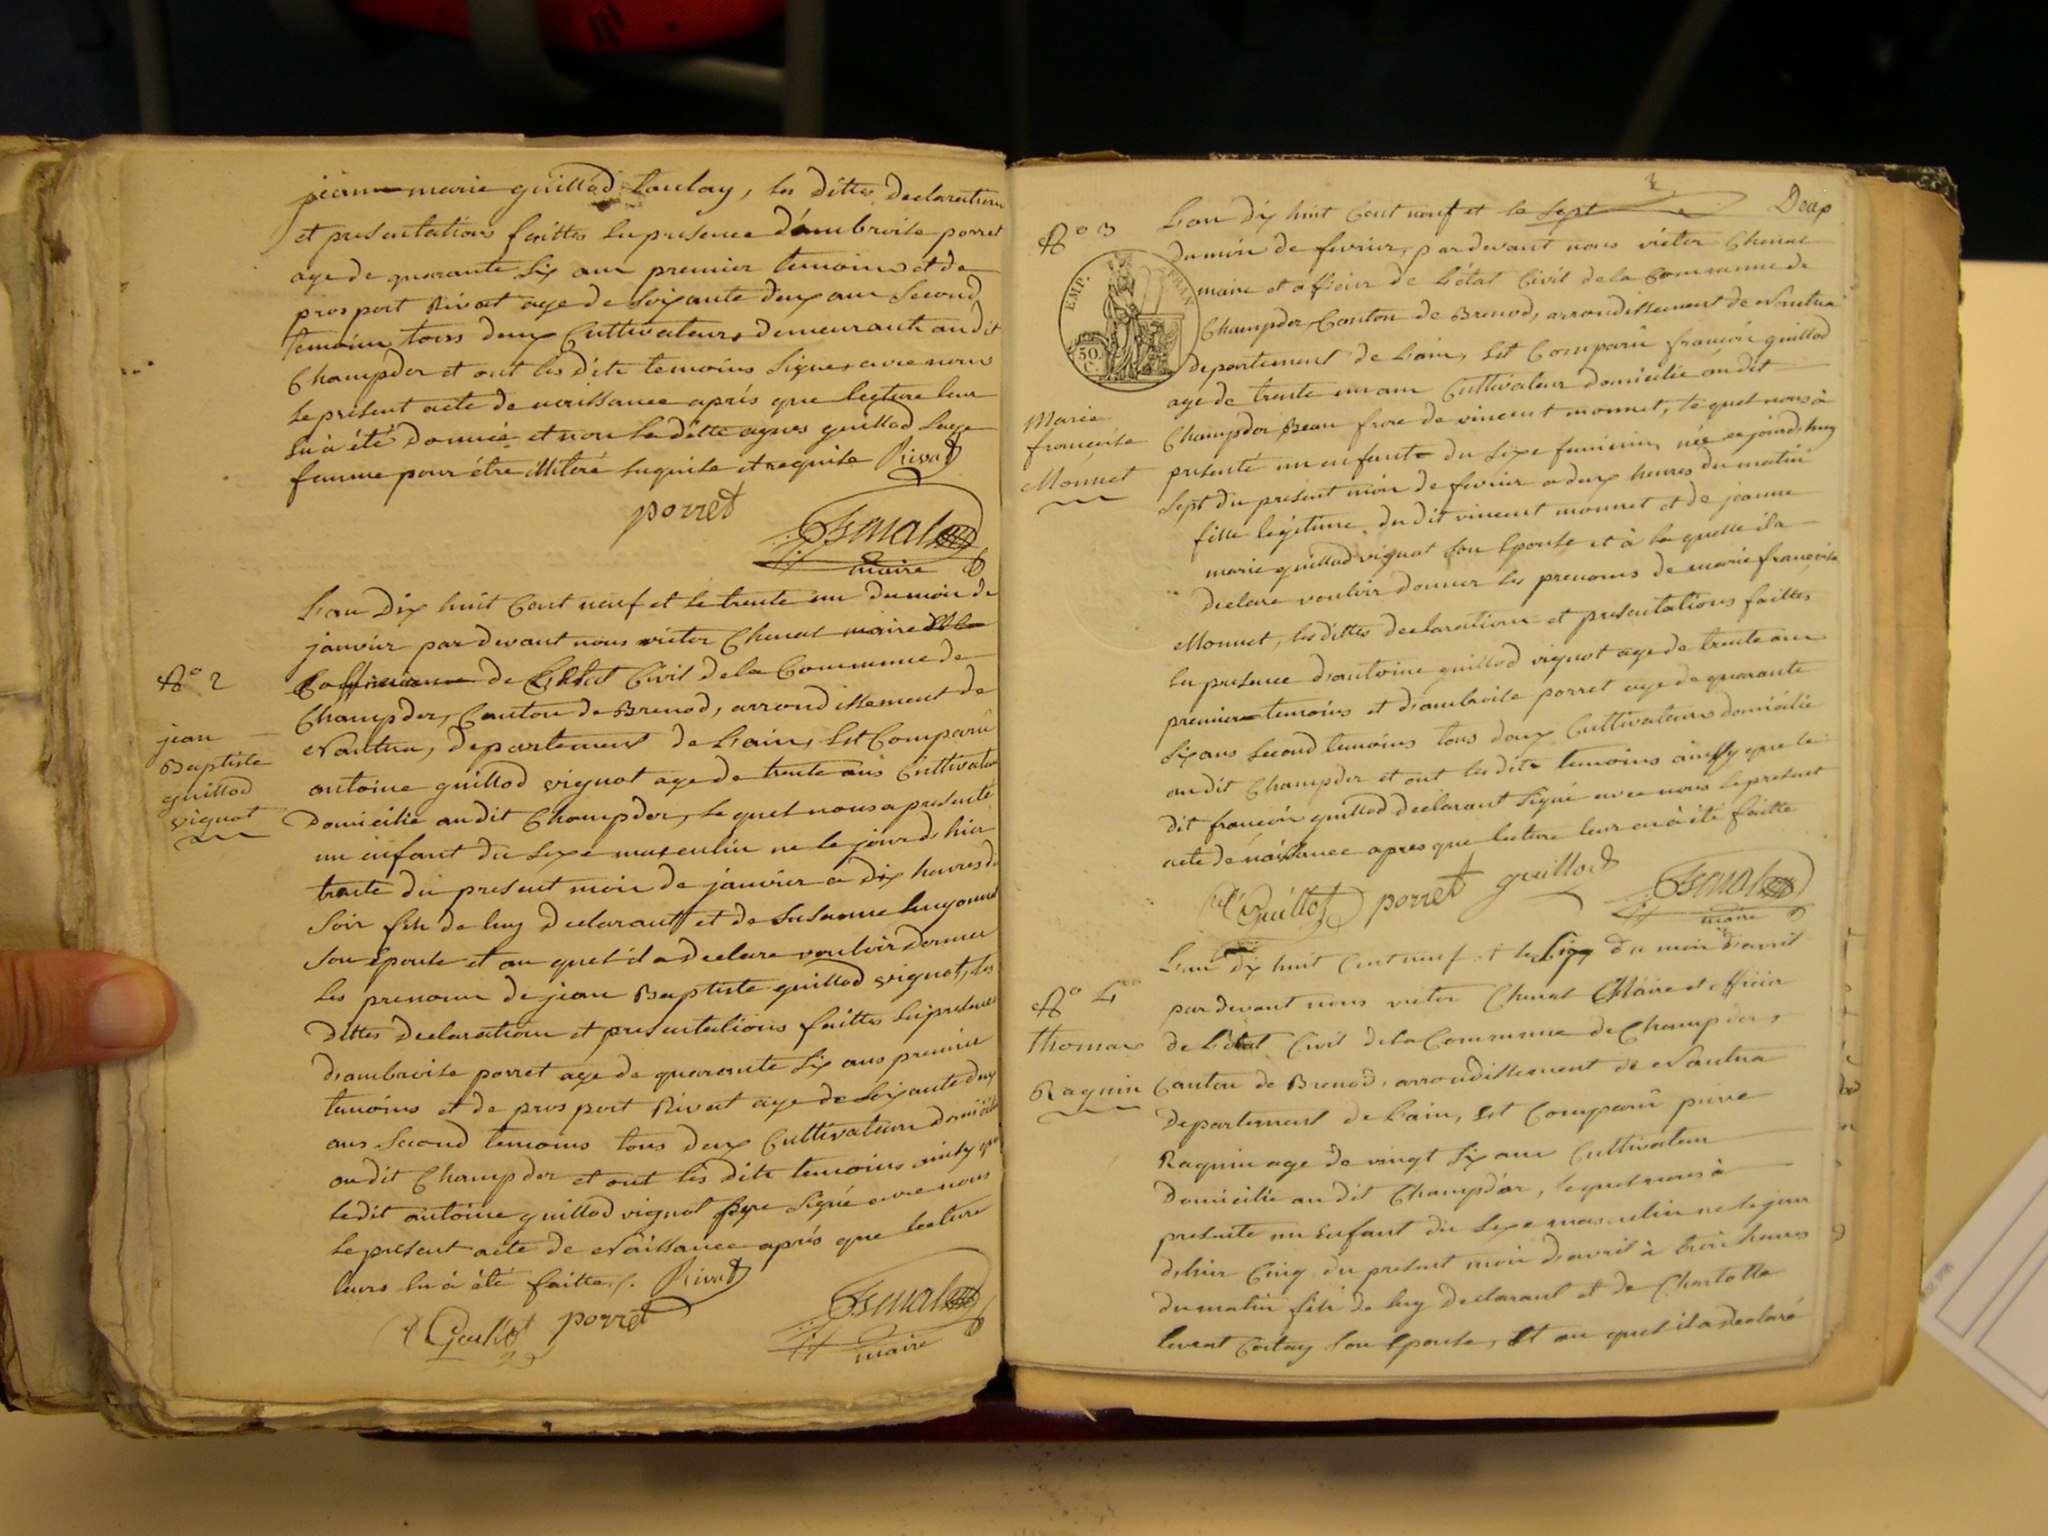 jeanne marie guillod Laulay, les dittes declarations
et presentations faittes en presence d'ambroise porret
age de quarante six ans premier temoins et de
prosport Rivat age de soixante deux ans second
temoins tous deux Cultivateurs demeurants au dit
Champdor et ont les dits temoins signes avec nous
le présent acte de naissance aprés que lecture leur
en à été Donnée et non la ditte agnes guillod sage
famme pour étre illiteré enquise et requise Rivat
porret
maire
N° 2
jean
Baptiste
guillod
vignat
L'an Dix huit Cent neuf et le trente un du mois de
janvier par devant nous victor Chenal maire
de L'état Civil de la Commune de
Champdor, Canton de Brenod, arrondissement de
Nantua, departement de L'ain, Est Comparû
antoine guillod vignat age de trente ans Cultivateur
Domicilié au dit Champdor, le quel nous a presenté
un enfant du sexe masculin ne le jour d'hier
trente du present mois de janvier a dix heures du
soir fils de luy declarant et de susanne
son epouse et au quel il a declare vouloir donner
les prenoms de jean Baptiste guillod vignat, les
dittes declarations et presentations faittes en presence
d'ambroise porret age de quarante six ans premier
temoins et de prosport Rivat age de soixante deux
ans second temoins tous deux Cultivateurs domicilié
au dit Champdor et ont les dits temoins ainsy que
le dit antoine guillod vignat pere signé avec nous
le present acte de Naissance aprés que lecture
leurs en à été faitte. Rivat
porret
maire
Deux
N° 3
Marie
françoise
Monnet
EMP. FRAN
50. C.
L'an dix huit Cent neuf et le sept
du mois de fevrier, par devant nous victor Chenal
maire et officier de L'état Civil de la Commune de
Champdor, Canton de Brenod, arrondissement de Nantua
departement de L'ain, Est Comparû françois guillod
age de trente un ans Cultivateur domicilié au dit
Champdor Beau frere de vincent monnet, le quel nous à
presenté un enfant du sixe feminin, née aujourd'huy
sept du present mois de fevrier a deux heures du matin
fille legitime du dit vincent monnet et de jeanne
marie guillod vignat son epouse et à la quelle il a
declare vouloir donner les prenoms de marie françoise
Monnet, les dittes declarations et presentations faittes
en presence d'antoine guillod vignat age de trente ans
premier temoins et d'ambroise porret age de quarante
six ans second temoins tous deux Cultivateurs domicilié
au dit Champdor et ont les dits temoins ainssy que le
dit françois guillod declarant signé avec nous le present
acte de naissance apres que lecture leur en à été faitte
Guillot porret guillod
maire
N° 4
thomas
Raquin
L'an dix huit Cent neuf et le six du mois d'avril
par devant nous victor Chenal Maire et officier
de L'état Civil de la Commune de Champdor,
Canton de Brenod, arrondissement de Nantua
departement de L'ain, Est Comparû pierre
Raquin age de vingt six ans Cultivateur
Domicilié au dit Champdor, le quel nous à
presenté un Enfant du sexe masculin ne le jour
d'hier Cinq du present mois d'avril à trois heures
du matin fils de luy declarant et de Charlotte
son Epouse, Et au quel il a declaré